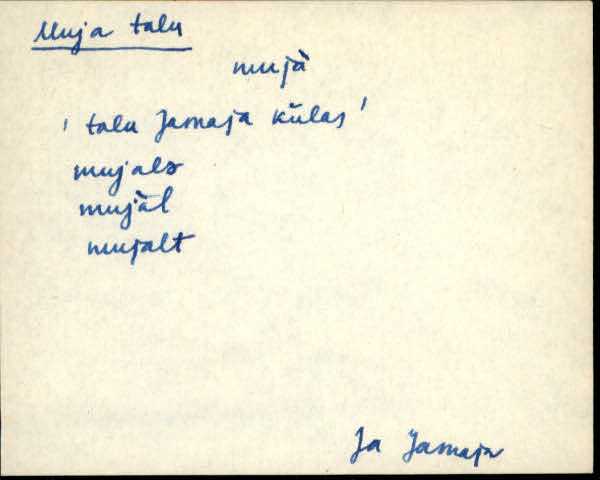 Muja talu
mujà
' talu Jamaja külas '
mujalə
mujàl
mujalt
Ja Jamaja